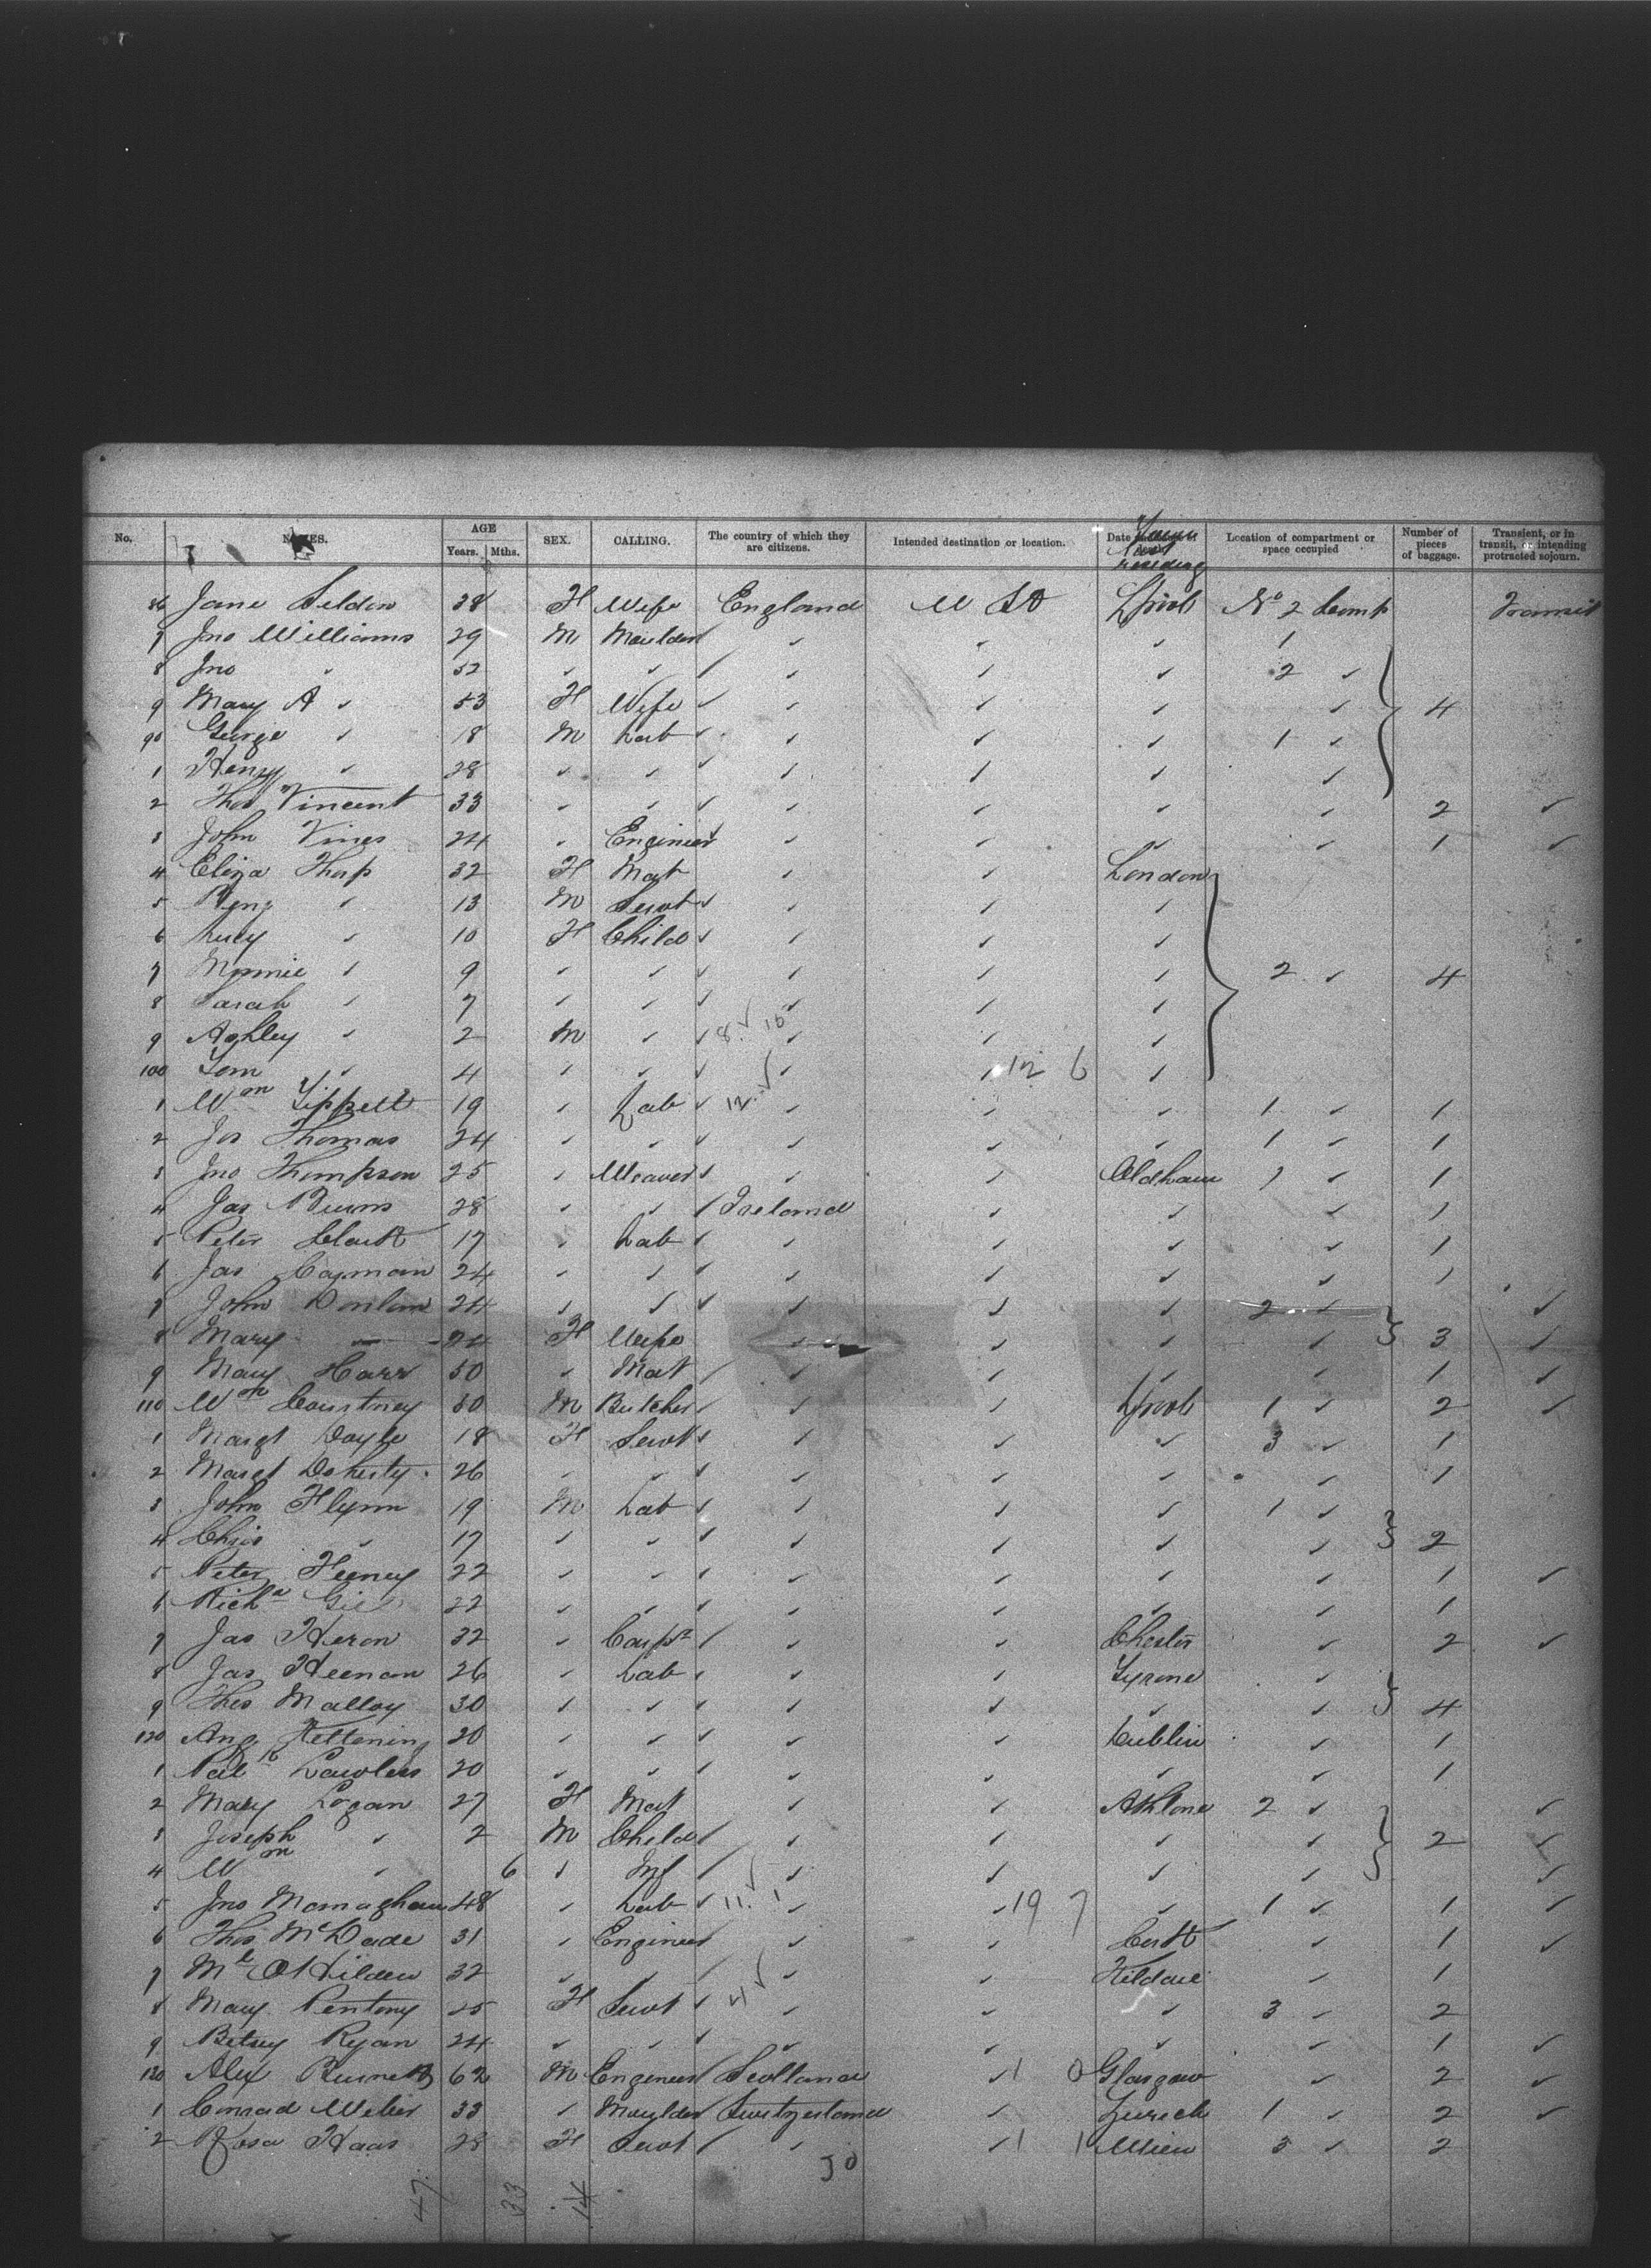 No. NAMES. AGE Years. Mths. SEX. CALLING. The country of which they are citizens. Intended destination or location. Date Location of compartment or space occupied Number of pieces of baggage. Transient, or in transit, or intending protracted sojourn.
residing
86 Jane Seldon 38 F Wife England U SA L'pool No 2 Comp Transit
7 Jno Williams 29 M Moulder ✓ ✓ ✓ ✓ 1
8 Jno ✓ 52 ✓ ✓ ✓ ✓ ✓ ✓ 2 ✓
9 Mary A ✓ 53 F Wife ✓ ✓ ✓ ✓ ✓ 4
90 George ✓ 18 M Lab ✓ ✓ ✓ ✓ 1 ✓
1 Henry ✓ 28 ✓ ✓ ✓ ✓ ✓ ✓ ✓
2 Thos Vincent 33 ✓ ✓ ✓ ✓ ✓ ✓ ✓ 2 ✓
3 John Vines 24 ✓ Engineer ✓ ✓ ✓ ✓ ✓ 1 ✓
4 Eliza Thorp 32 F Mat ✓ ✓ London
5 Benj ✓ 13 M Servt ✓ ✓ ✓ ✓
6 Lucy ✓ 10 F Child ✓ ✓ ✓ ✓
7 Minnie ✓ 9 ✓ ✓ ✓ ✓ ✓ ✓ 2 ✓ 4
8 Sarah ✓ 7 ✓ ✓ ✓ ✓ ✓ ✓
9 Ashley ✓ 2 M ✓ ✓ 8 ✓ 10 ✓ ✓ ✓
100 Tom ✓ 4 ✓ ✓ ✓ ✓ ✓ 12 6 ✓
1 Wm Tippett 19 ✓ Lab ✓ 12 ✓ ✓ ✓ ✓ 1 ✓ 1
2 Jos Thomas 24 ✓ ✓ ✓ ✓ ✓ ✓ 1 ✓ 1
3 Jno Thompson 25 ✓ Weaver ✓ ✓ ✓ Oldham 1 ✓ 1
4 Jas Burns 28 ✓ ✓ ✓ Ireland ✓ ✓ ✓ 1
5 Peter Clark 17 ✓ Lab ✓ ✓ ✓ ✓ ✓ 1
6 Jas 24 ✓ ✓ ✓ ✓ ✓ ✓ ✓ 1
7 John Donlon 24 ✓ ✓ ✓ ✓ ✓ ✓ 2 ✓ ✓
8 Mary — 24 F Wife ✓ ✓ ✓ ✓ 3 ✓
9 Mary Carr 50 ✓ Mat ✓ ✓ ✓ ✓ ✓ 1 ✓
110 Wm Courtney 30 M Butcher ✓ ✓ ✓ L'pool 1 ✓ 2 ✓
1 Margt Doyle 18 F Servt ✓ ✓ ✓ ✓ 3 ✓ 1
2 Margt Doherty 26 ✓ ✓ ✓ ✓ ✓ ✓ ✓ 1
3 John Flynn 19 M Lab ✓ ✓ ✓ ✓ 1 ✓
4 Chris ✓ 17 ✓ ✓ ✓ ✓ ✓ ✓ ✓ 2
5 Peter Feeney 22 ✓ ✓ ✓ ✓ ✓ ✓ ✓ 1 ✓
6 Richd 22 ✓ ✓ ✓ ✓ ✓ ✓ ✓ 1
7 Jas Heron 32 ✓ Carpr ✓ ✓ ✓ Chester ✓ 2 ✓
8 Jas Heenan 26 ✓ Lab ✓ ✓ ✓ Tyrone ✓
9 Thos Malloy 30 ✓ ✓ ✓ ✓ ✓ ✓ ✓ 4
120 20 ✓ ✓ ✓ ✓ ✓ Dublin ✓ 1
1 Patk Lawless 20 ✓ ✓ ✓ ✓ ✓ ✓ ✓ 1
2 Mary Logan 27 F Mat ✓ ✓ Athlone 2 ✓ ✓
3 Joseph ✓ 2 M Child ✓ ✓ ✓ ✓ ✓ 2 ✓
4 Wm ✓ 6 ✓ Inf ✓ ✓ ✓ ✓ ✓ ✓
5 Jno Monaghan 48 ✓ Lab ✓ 11 ✓ 1 ✓ ✓ 19 7 ✓ 1 ✓ 1 ✓
6 Thos McDade 31 ✓ Engineer ✓ ✓ Cork ✓ 1 ✓
7 32 ✓ ✓ ✓ ✓ ✓ Kildare ✓ 1
8 Mary Pentony 25 F Servt ✓ 4 ✓ ✓ ✓ ✓ 3 ✓ 2
9 Betsey Ryan 24 ✓ ✓ ✓ ✓ ✓ ✓ ✓ 1 ✓
130 Alex 62 M Engineer ✓ Scotland ✓ 1 0 Glasgow ✓ 2 ✓
1 Conrad Weber 33 ✓ Moulder Switzerland ✓ Zurich 1 ✓ 2 ✓
2 Rosa Haas 28 F Servt ✓ ✓ ✓ 1 1 Wien 3 ✓ 2
47 33 14 30